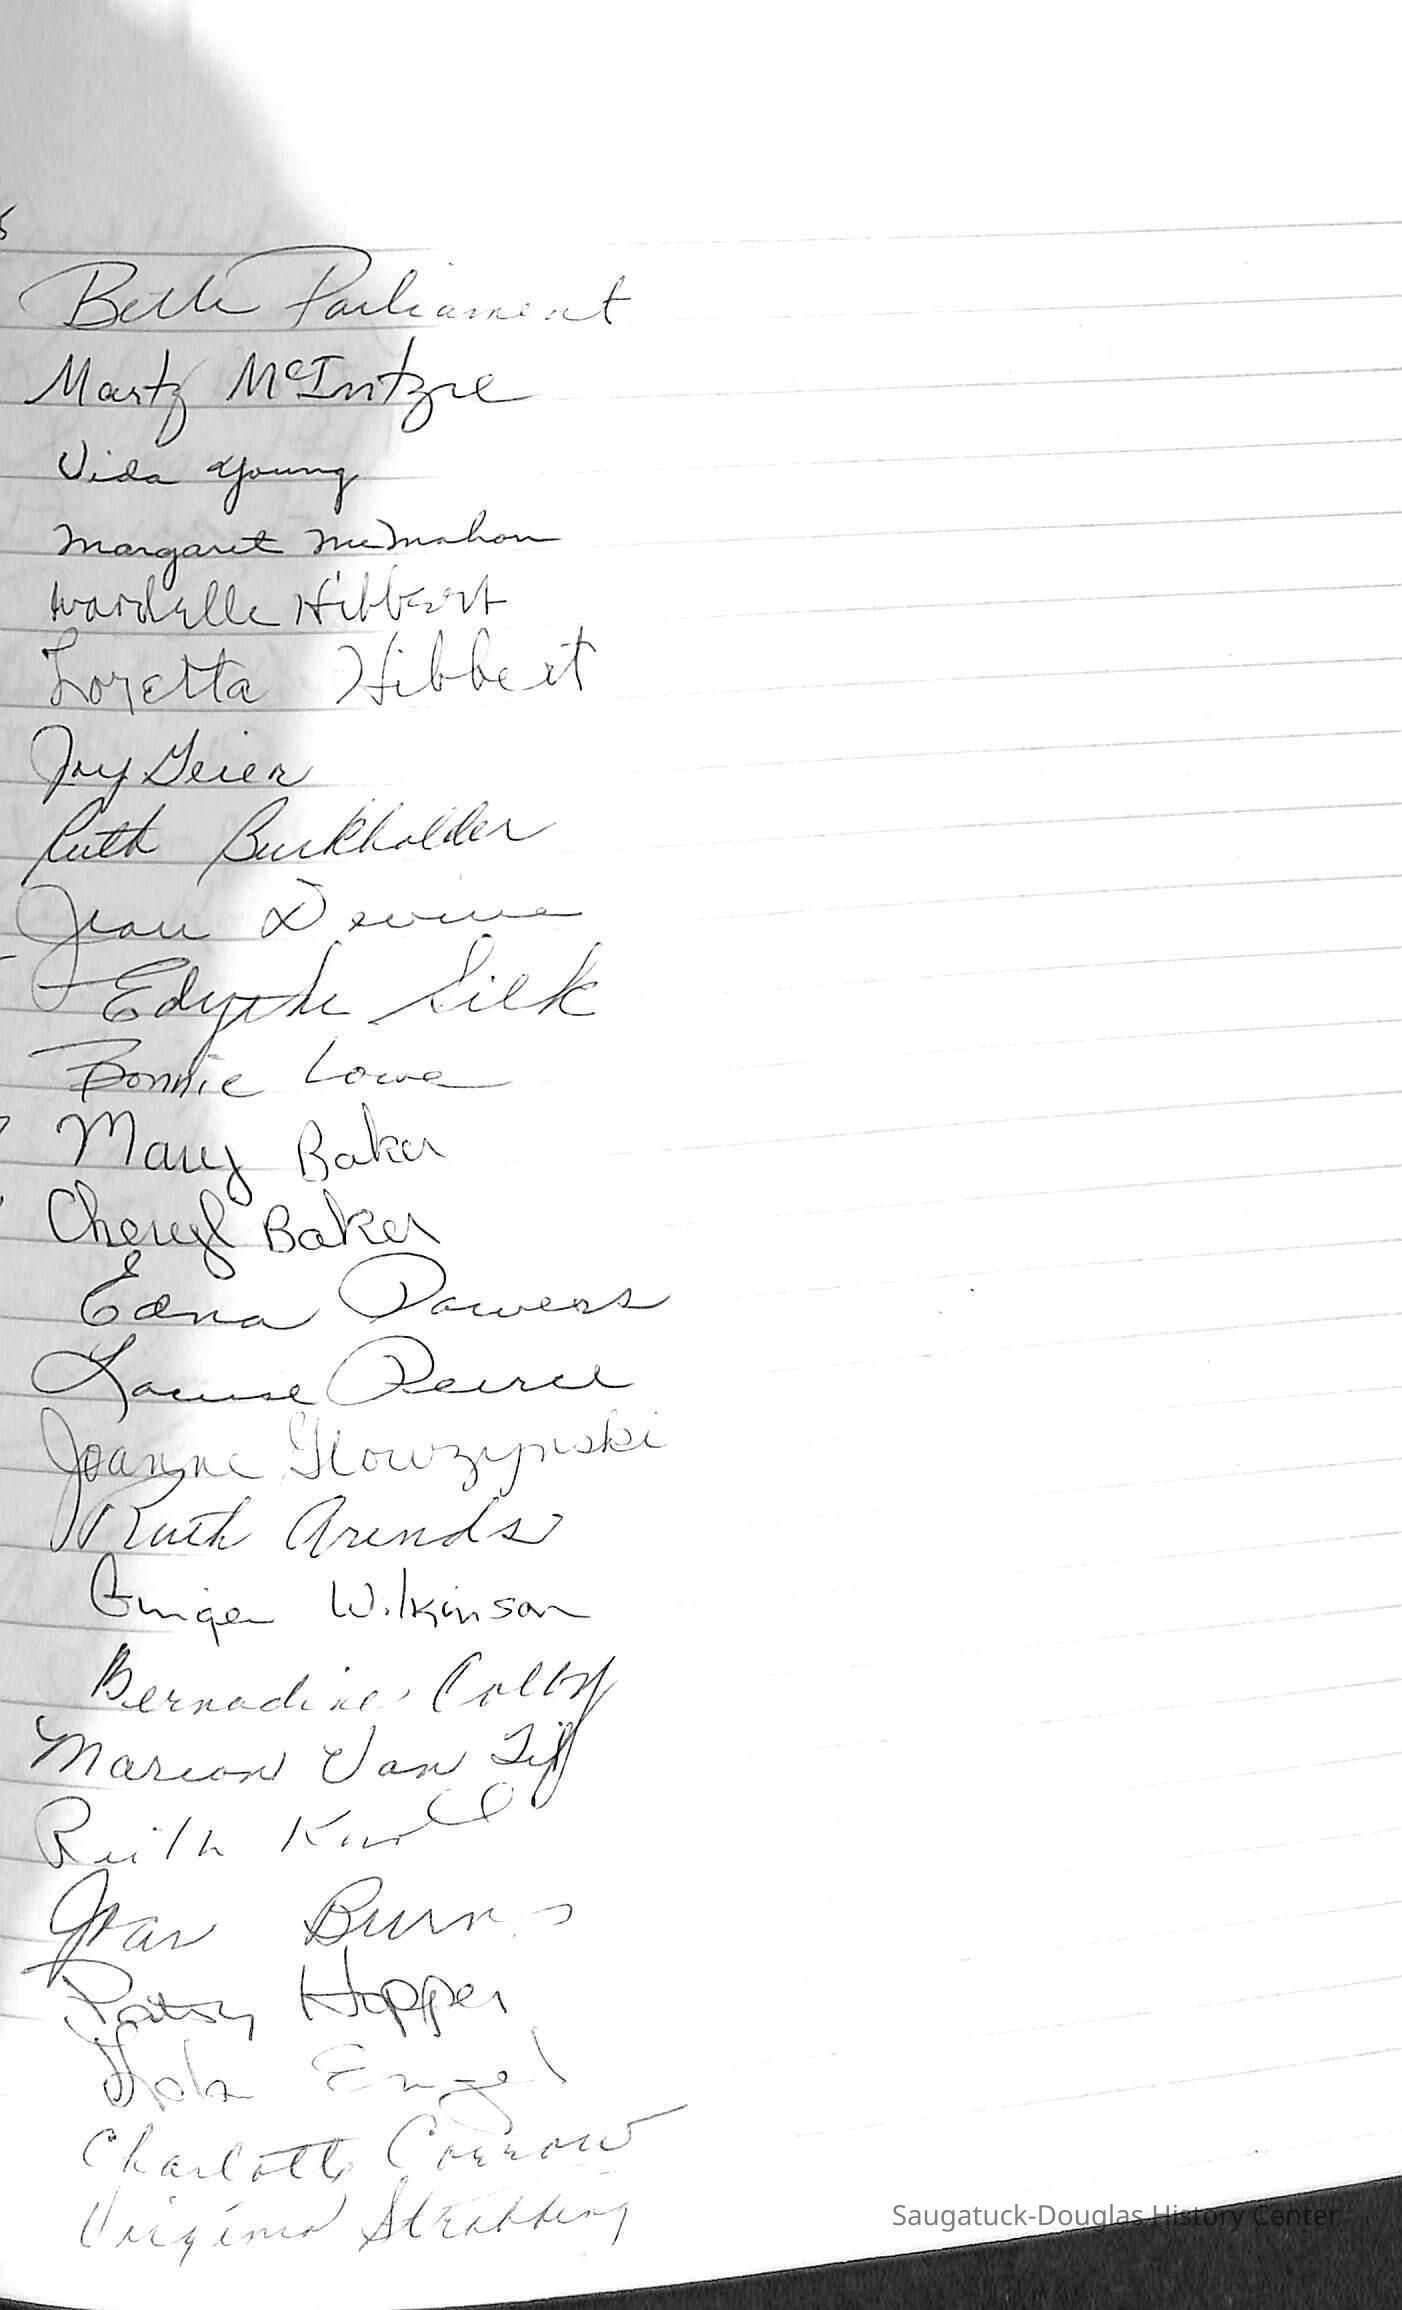 Beth Parliament
Marty McIntyre
Vida Young
Margaret McMahon
Wardelle Hibbert
Loretta Hibbert
Joy Geier
Ruth Burkholder
Jean Devine
Edythe Silk
Bonnie Lowe
Mary Baker
Cheryl Baker
Edna Powers
Louise Peirce
Joanne Glowzynski
Ruth Arends
Ginger Wilkinson
Bernadine Colby
Marion Van Til
Ruth
Jean Burns
Patsy Hopper
Engel
Charlotte Corrow
Virginia Strabbing
Saugatuck-Douglas History Center